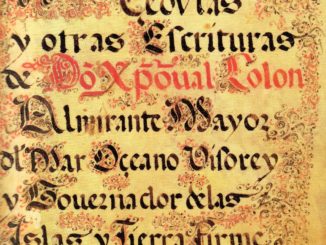 Cedulas
y otras Escrituras
de Dō Xp̄oual Colon
Almirante Mayor
dl Mar Occano Visorey
y Governador de las
Islas y Tierra firme